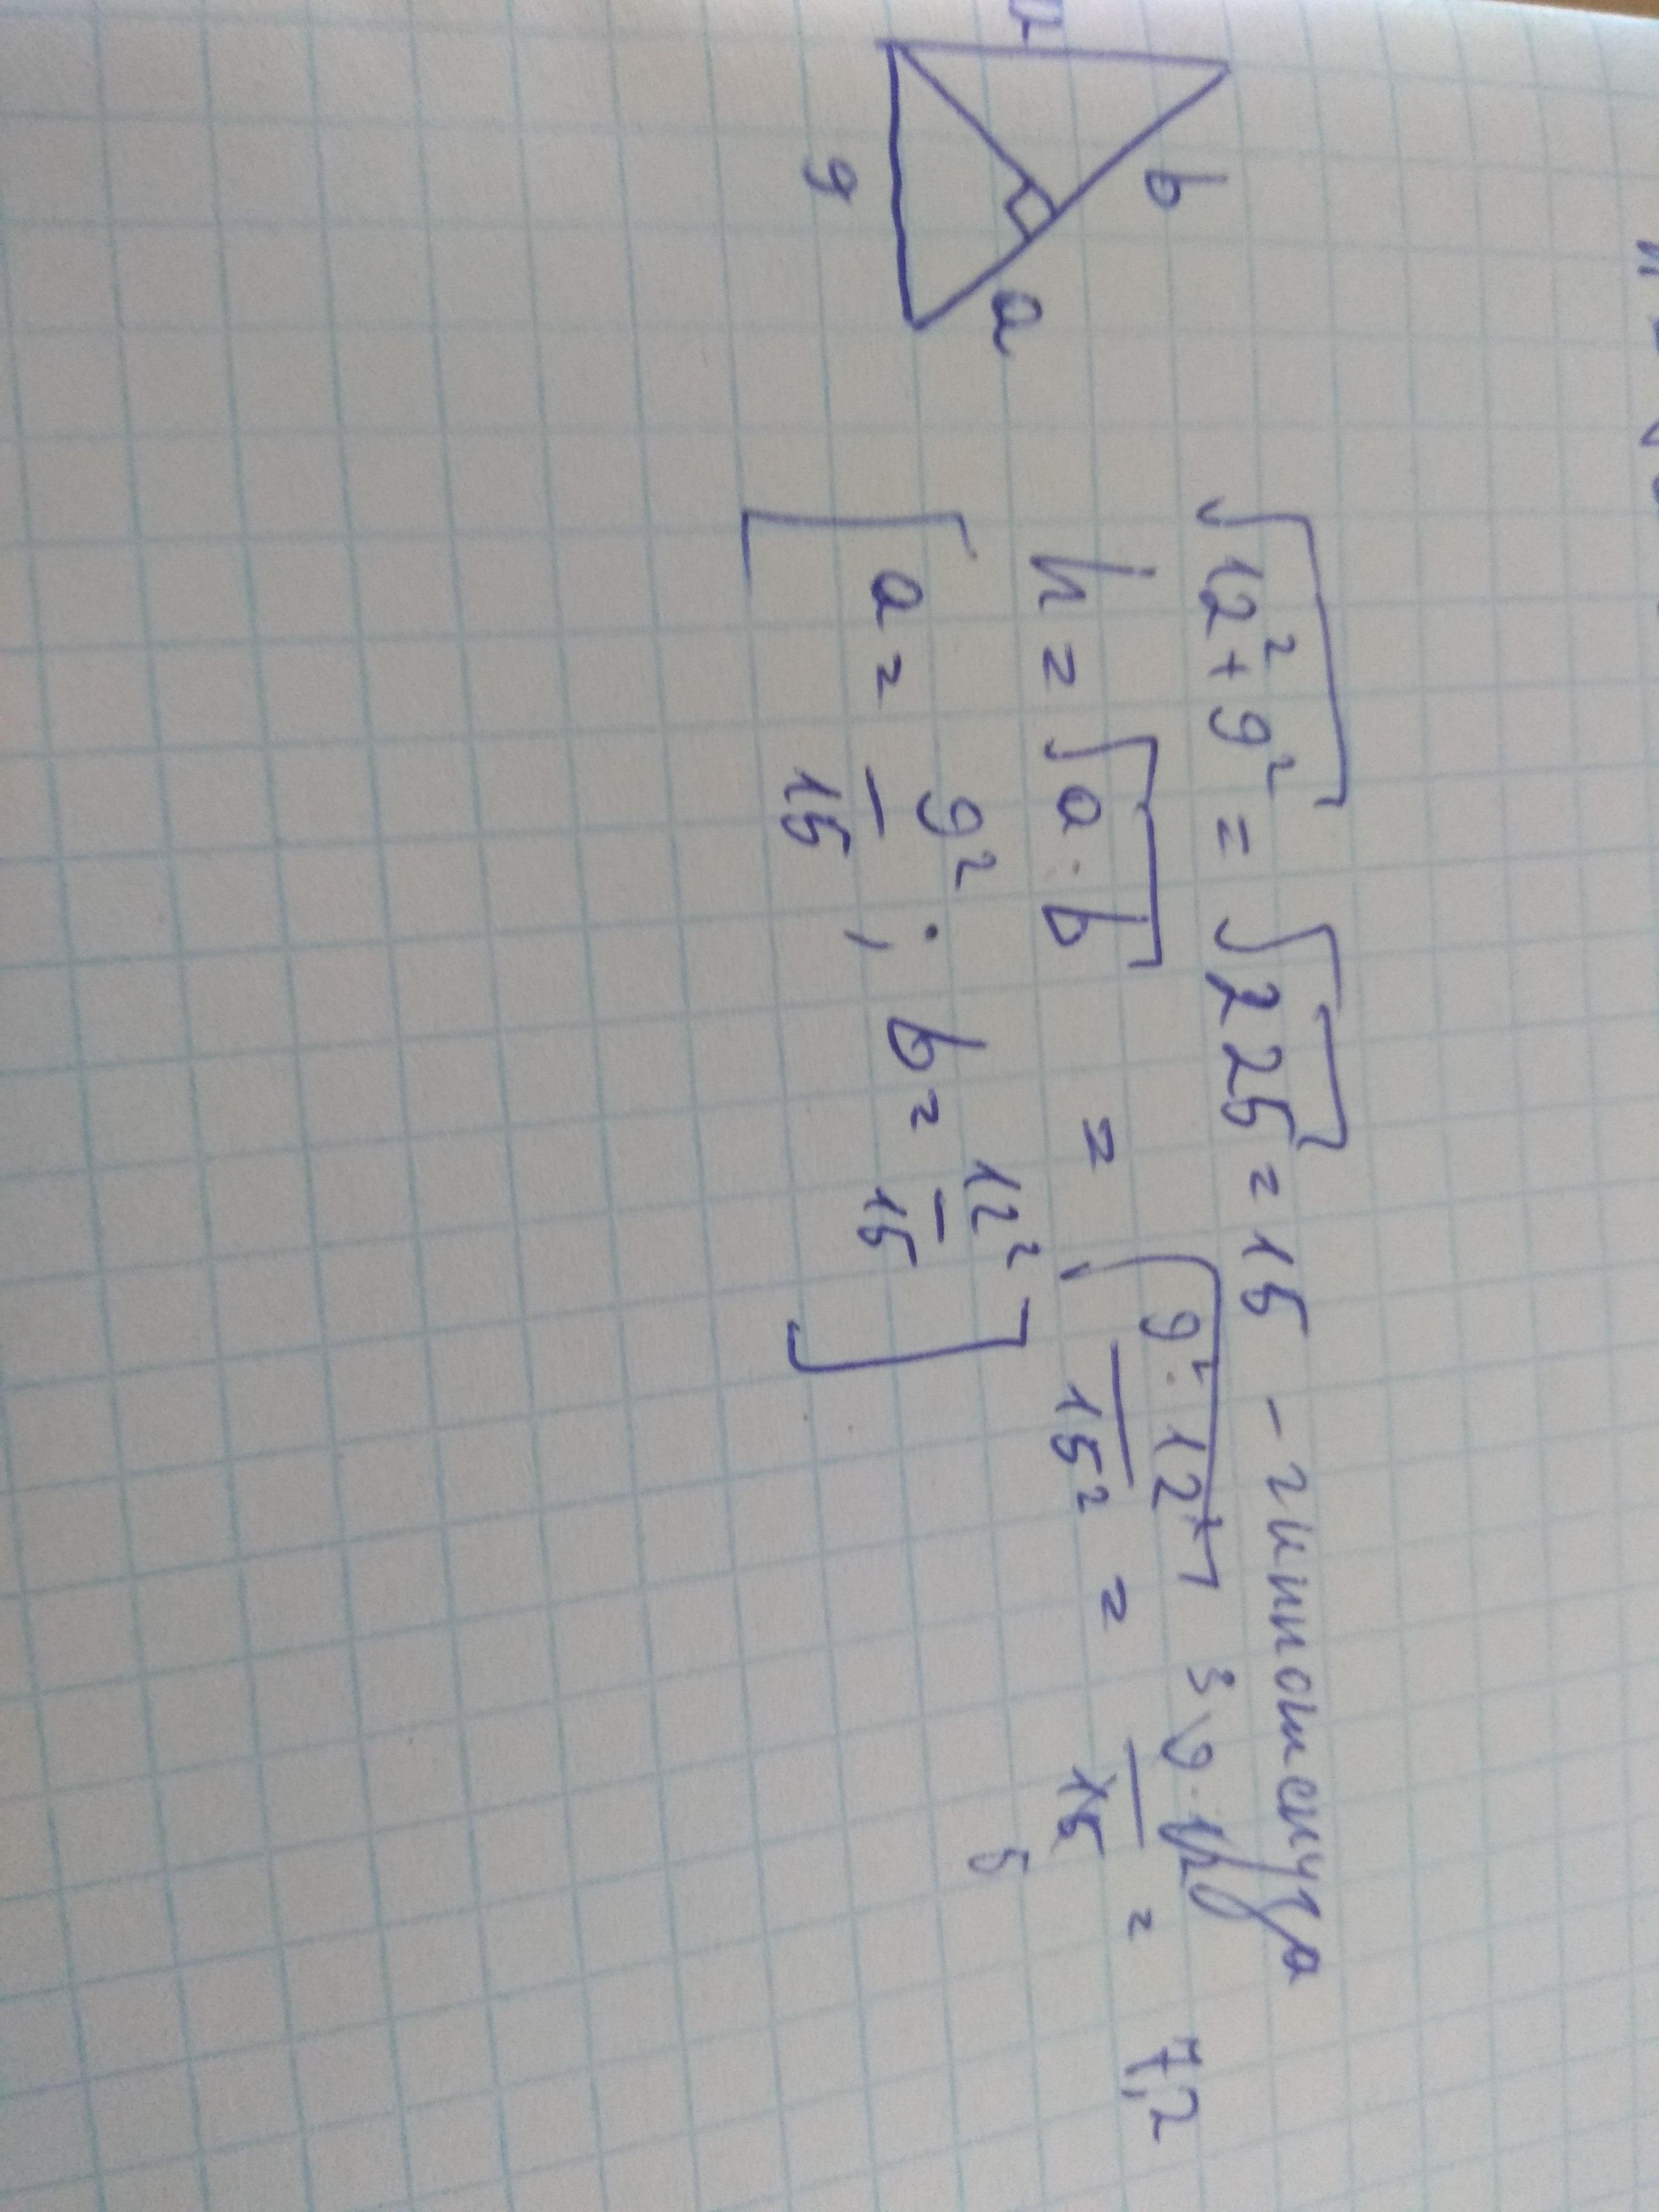 b
a
9
√12² + 9² = √225 = 15 - гиппотенуза
h = √a · b = √9² · 12² / 15² = 3 9 · 12 / 15 5 = 7,2
[ a = 9² / 15 ; b = 12² / 15 ]